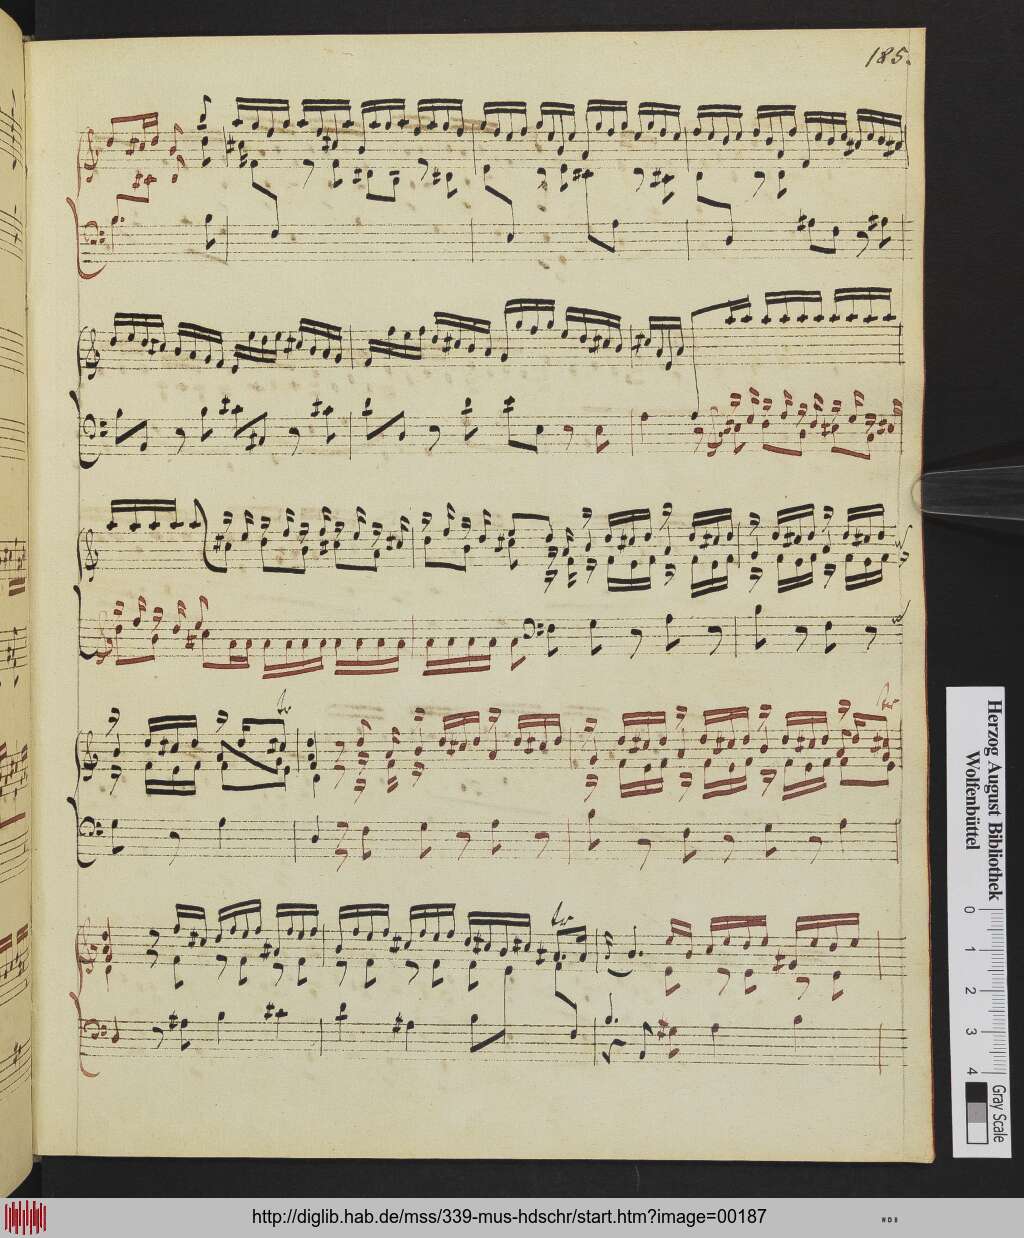 185.
tr
tr
tr
Herzog August Bibliothek
Wolfenbüttel
0 1 2 3 4
Gray Scale
http://diglib.hab.de/mss/339-mus-hdschr/start.htm?image=00187
WDB